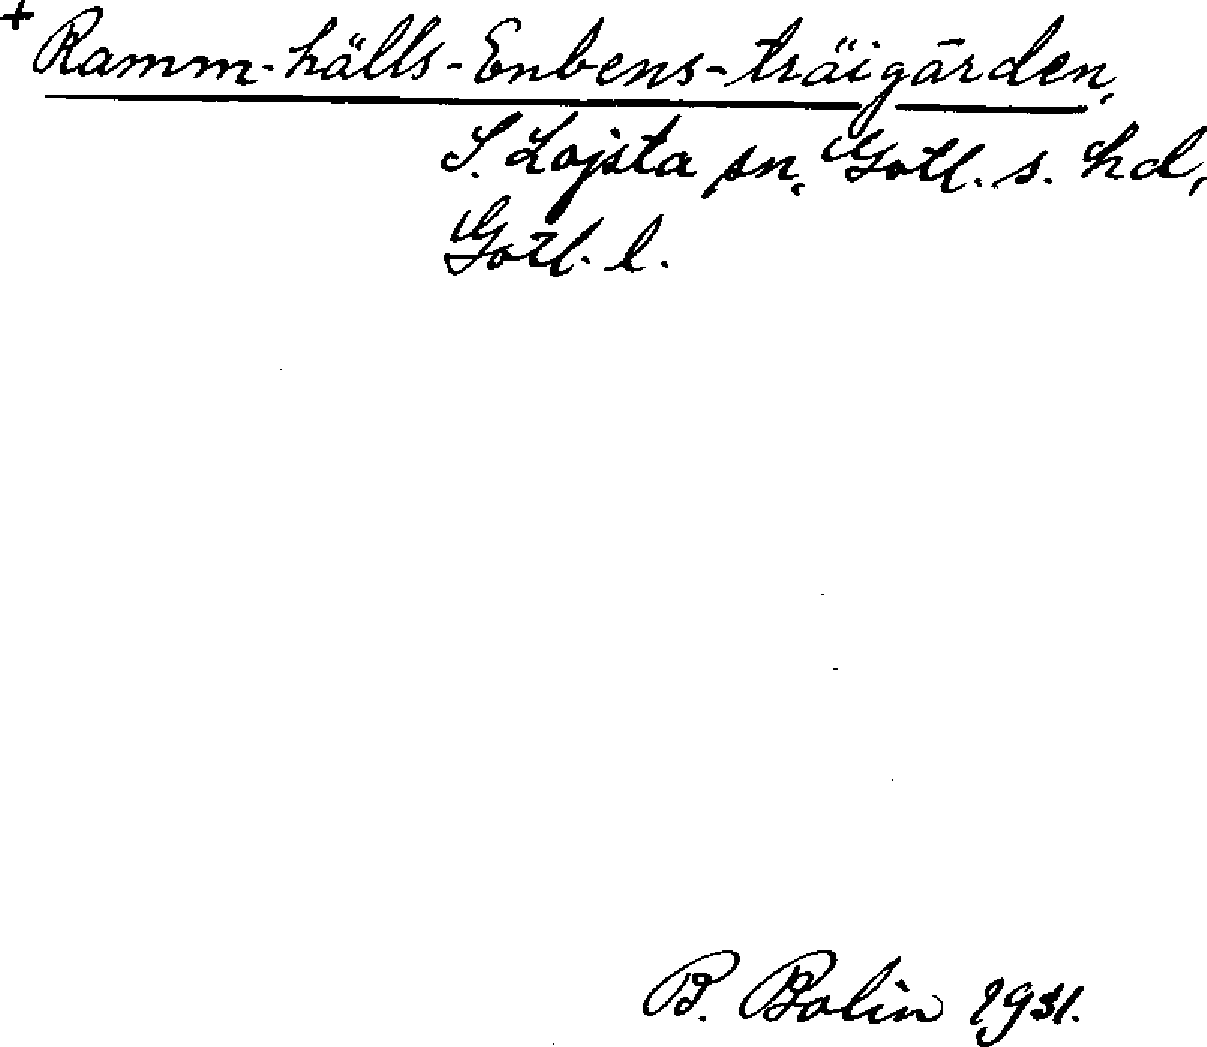 + Ramm-hälls-Enbens-träigārden,
S. Lojsta sn, Gotl. s. hd,
Gotl. l.
B. Bolin 1931.